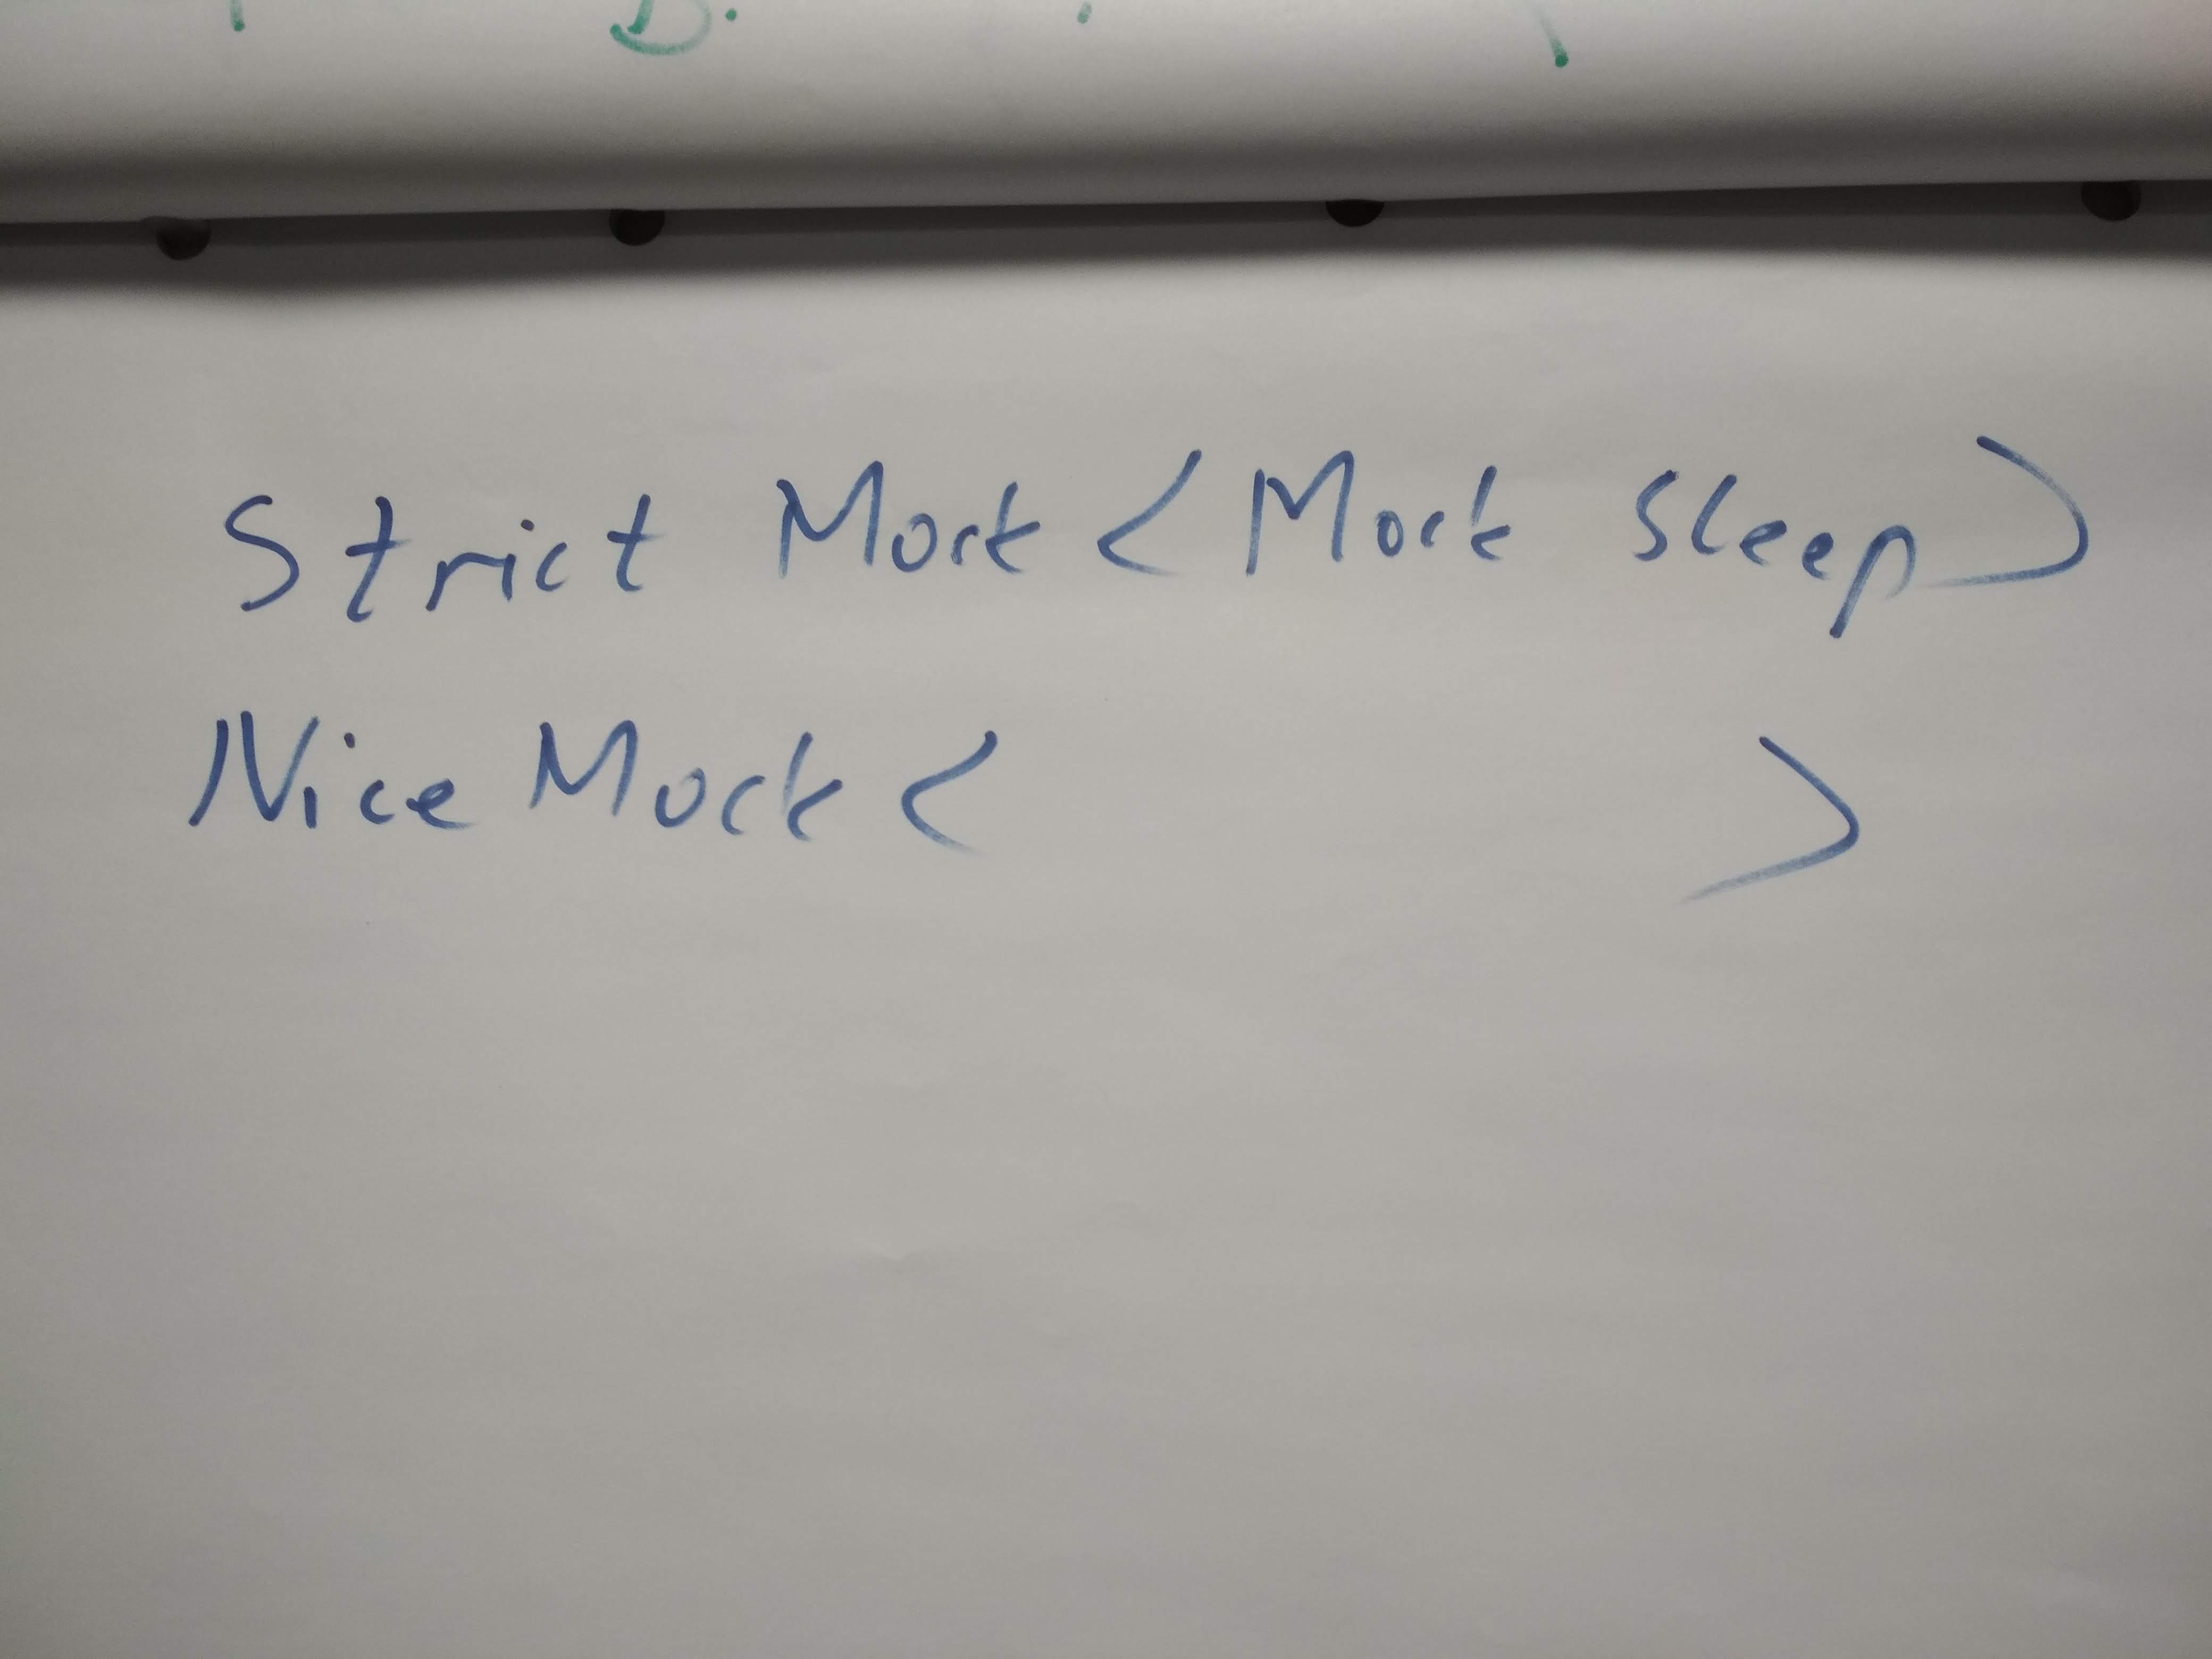 Strict Mock <Mock Sleep>
Nice Mock < >